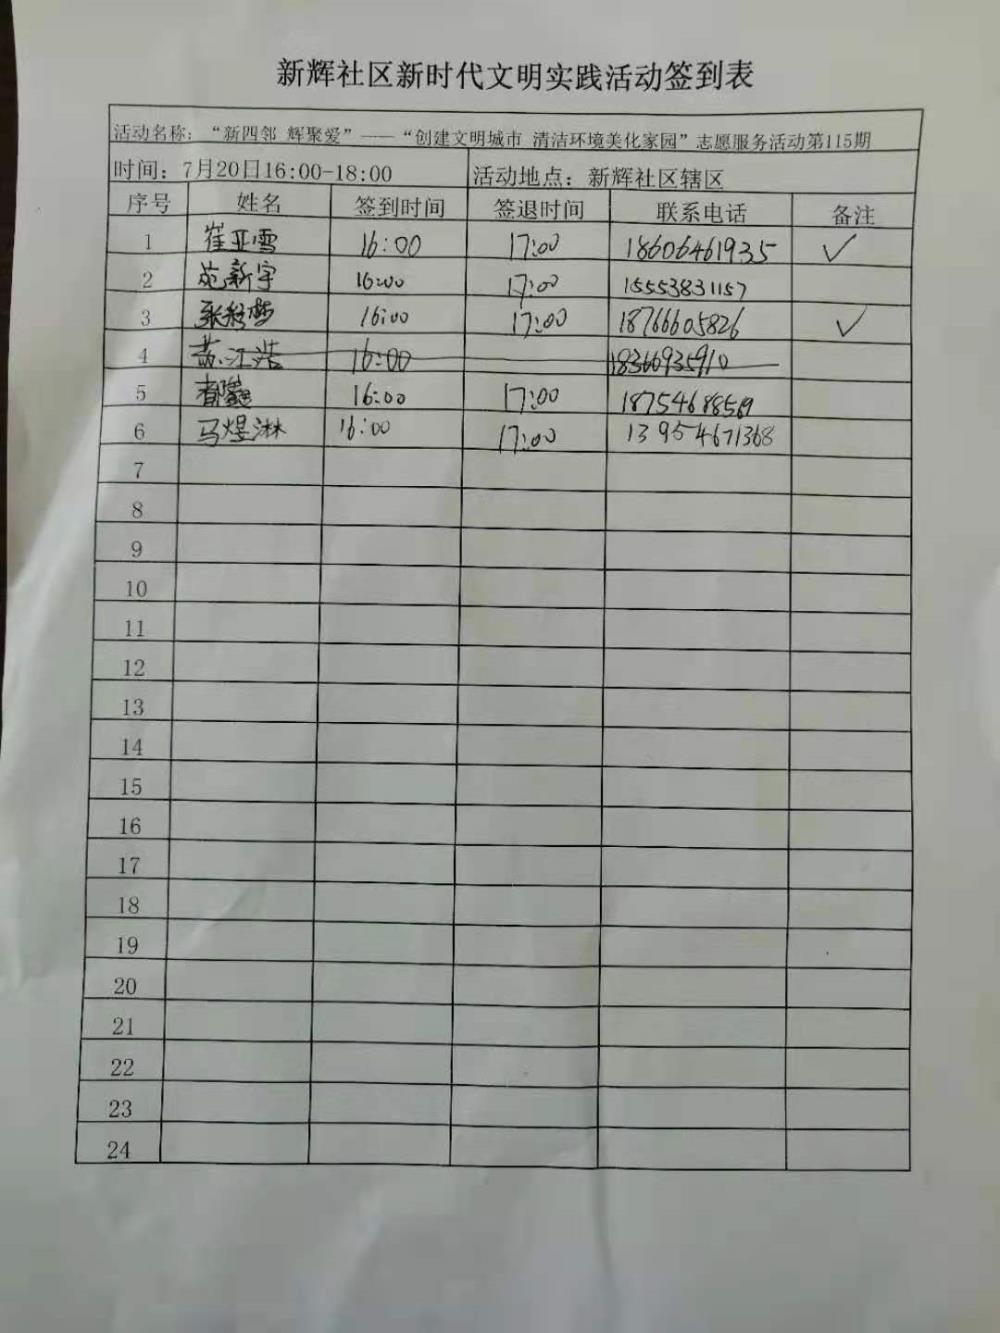 新辉社区新时代文明实践活动签到表
活动名称：“新四邻 辉聚爱”——“创建文明城市 清洁环境美化家园”志愿服务活动第115期
时间：7月20日16:00-18:00 活动地点：新辉社区辖区
序号 姓名 签到时间 签退时间 联系电话 备注
1 崔亚雪 16:00 17:00 18606461935 ✓
2 苑新宇 16:00 17:00 15553831157
3 张 16:00 17:00 18766605826 ✓
4 苏江浩 16:00 18366935910
5 16:00 17:00 18754688569
6 马煜淋 16:00 17:00 13954671368
7
8
9
10
11
12
13
14
15
16
17
18
19
20
21
22
23
24